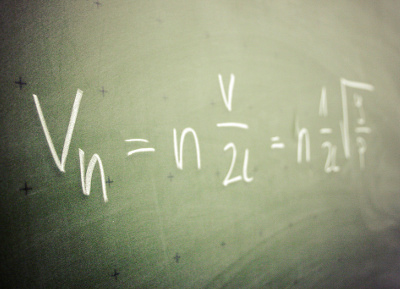 Vn = n v/2l = n 1/2l √